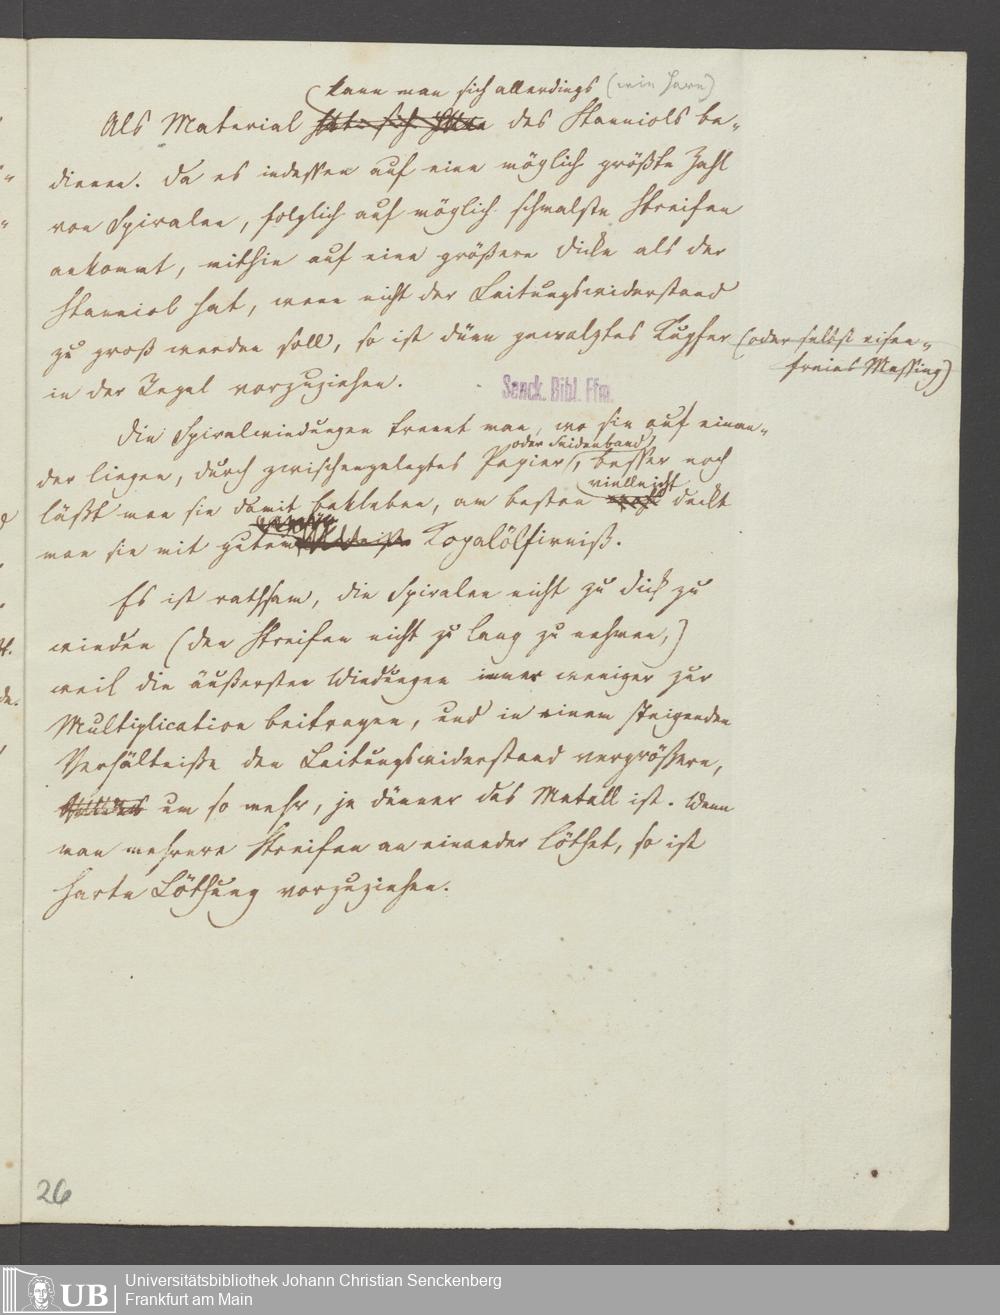 kann man sich allerdings
Als Material des Stanniols be-
dienen. Da es indessen auf eine möglich größte Zahl
von Spiralen, folglich auf möglich schmalste Streifen
ankommt, mithin auf eine größere Dicke als der
Stanniol hat, wenn nicht der Leitungswiderstand
zu groß werden soll, so ist dünn gewalztes Kupfer (oder selbst eisen-
freies Messing)
in der Regel vorzuziehen.
Senck. Bibl. Ffm.
Die Spiralwindungen trennt man, wo sie auf einan-
oder Seidenband
der liegen, durch zwischengelegtes Papier, besser noch
vielleicht
läßt man sie damit bekleben, am besten deckt
man sie mit gutem Kopalölfirniß.
Es ist rathsam, die Spiralen nicht zu dick zu
winden (den Streifen nicht zu lang zu nehmen,)
weil die äußersten Windungen immer weniger zur
Multiplication beitragen, und in einem steigenden
Verhältniße den Leitungswiderstand vergrößern,
um so mehr, je dünner das Metall ist. Wenn
man mehrere Streifen an einander löthet, so ist
harte Löthung vorzuziehen.
26
UB Universitätsbibliothek Johann Christian Senckenberg
Frankfurt am Main